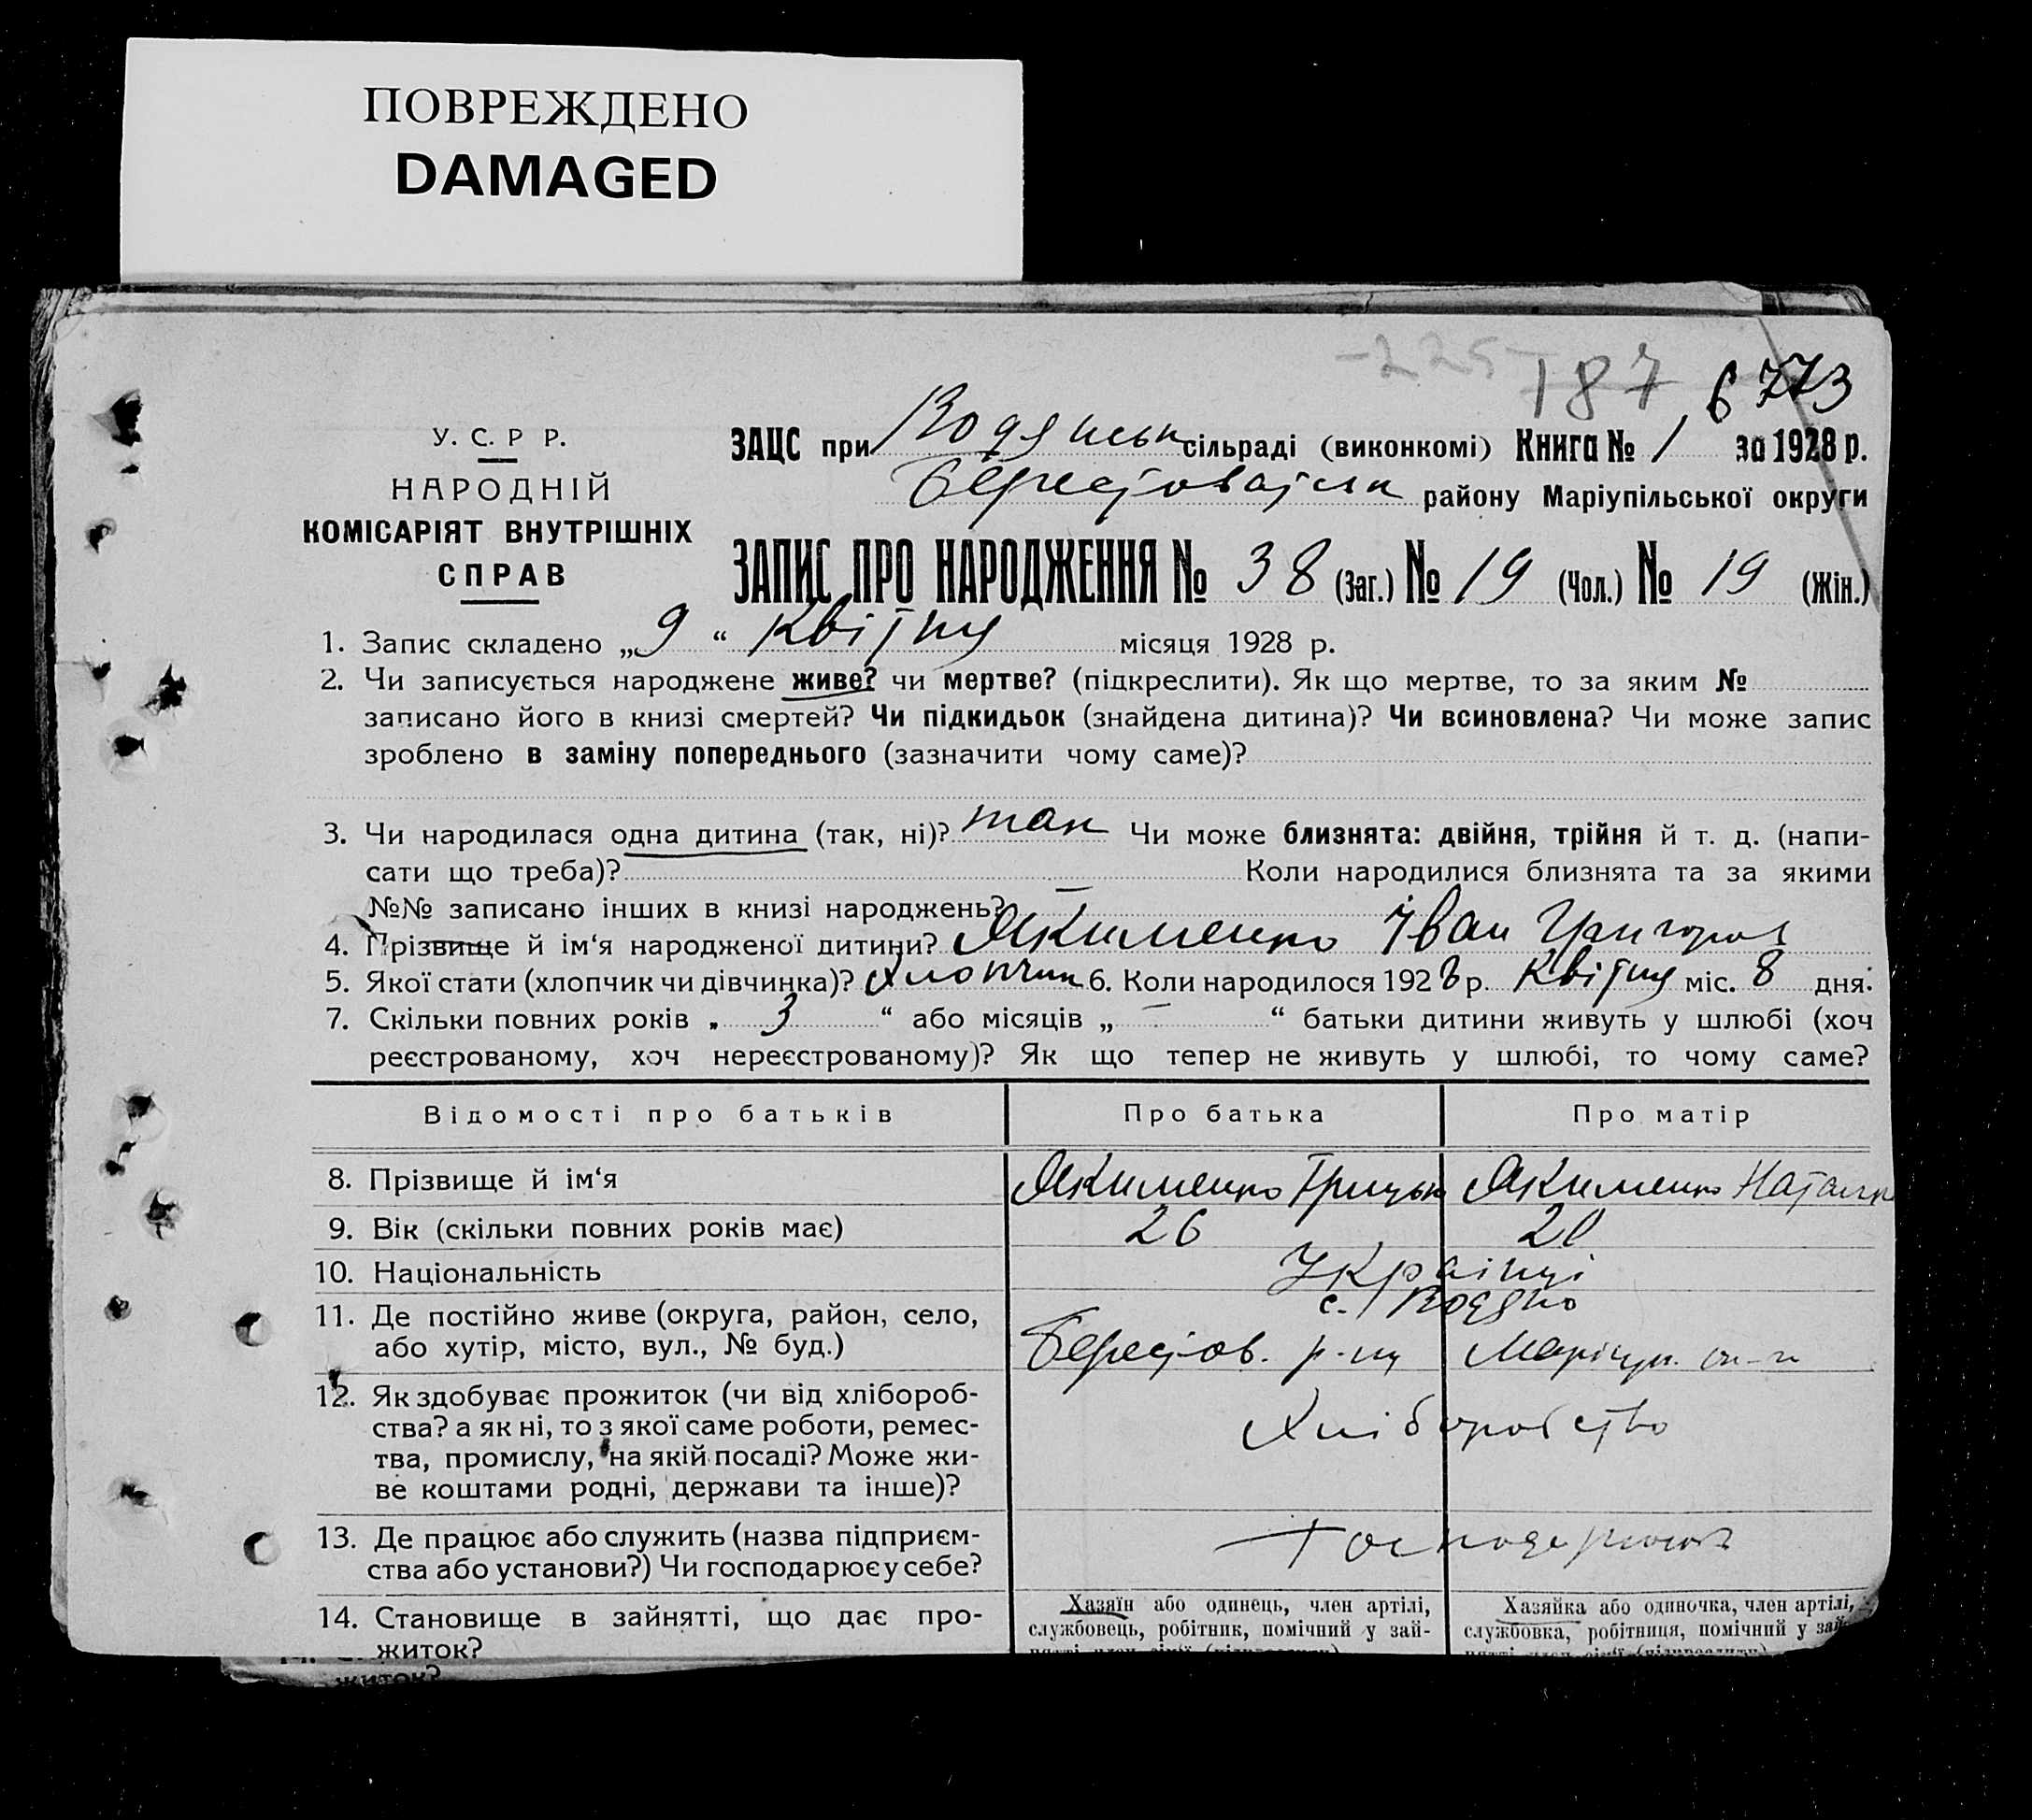 ПОВРЕЖДЕНО
DAMAGED
-225 187 6773
У. С. Р Р.
НАРОДНІЙ
КОМІСАРІЯТ ВНУТРІШНІХ
СПРАВ
ЗАЦС при Водянськ сільраді (виконкомі) Книга № 1 за 1928 р.
району Маріупільської округи
ЗАПИС ПРО НАРОДЖЕННЯ № 38 (Заг.) № 19 (Чол.) № 19 (Жін.)
1. Запис складено „ 9 “ Квітня місяця 1928 р.
2. Чи записується народжене живе? чи мертве? (підкреслити). Як що мертве, то за яким №
записано його в книзі смертей? Чи підкидьок (знайдена дитина)? Чи всиновлена? Чи може запис
зроблено в заміну попереднього (зазначити чому саме)?
3. Чи народилася одна дитина (так, ні)? так Чи може близнята: двійня, трійня й т. д. (напи-
сати що треба)? Коли народилися близнята та за якими
№№ записано інших в книзі народжень? —
4. Прізвище й ім‘я народженої дитини? Якименко Іван Григоров
5. Якої стати (хлопчик чи дівчинка)? Хлопчик 6. Коли народилося 1928 р. Квітня міс. 8 дня.
7. Скільки повних років „ 3 “ або місяців „ – “ батьки дитини живуть у шлюбі (хоч
реєстрованому, хоч нереєстрованому)? Як що тепер не живуть у шлюбі, то чому саме?
Відомості про батьків Про батька Про матір
8. Прізвище й ім‘я Якименко Грицько Якименко Наталя
9. Вік (скільки повних років має) 26 20
10. Національність Українці
11. Де постійно живе (округа, район, село, с. Водяно
або хутір, місто, вул., № буд.) Берестов. р-ну Маріуп. ок-и
12. Як здобуває прожиток (чи від хлібороб-
ства? а як ні, то з якої саме роботи, ремес- Хліборобство
тва, промислу, на якій посаді? Може жи-
ве коштами родні, держави та інше)?
13. Де працює або служить (назва підприєм- Господарюють
ства або установи?) Чи господарює у себе?
14. Становище в зайнятті, що дає про- Хазяїн або одинець, член артілі, Хазяйка або одиночка, член артілі,
житок? службовець, робітник, помічний у зай- службовка, робітниця, помічний у зай-
житок?